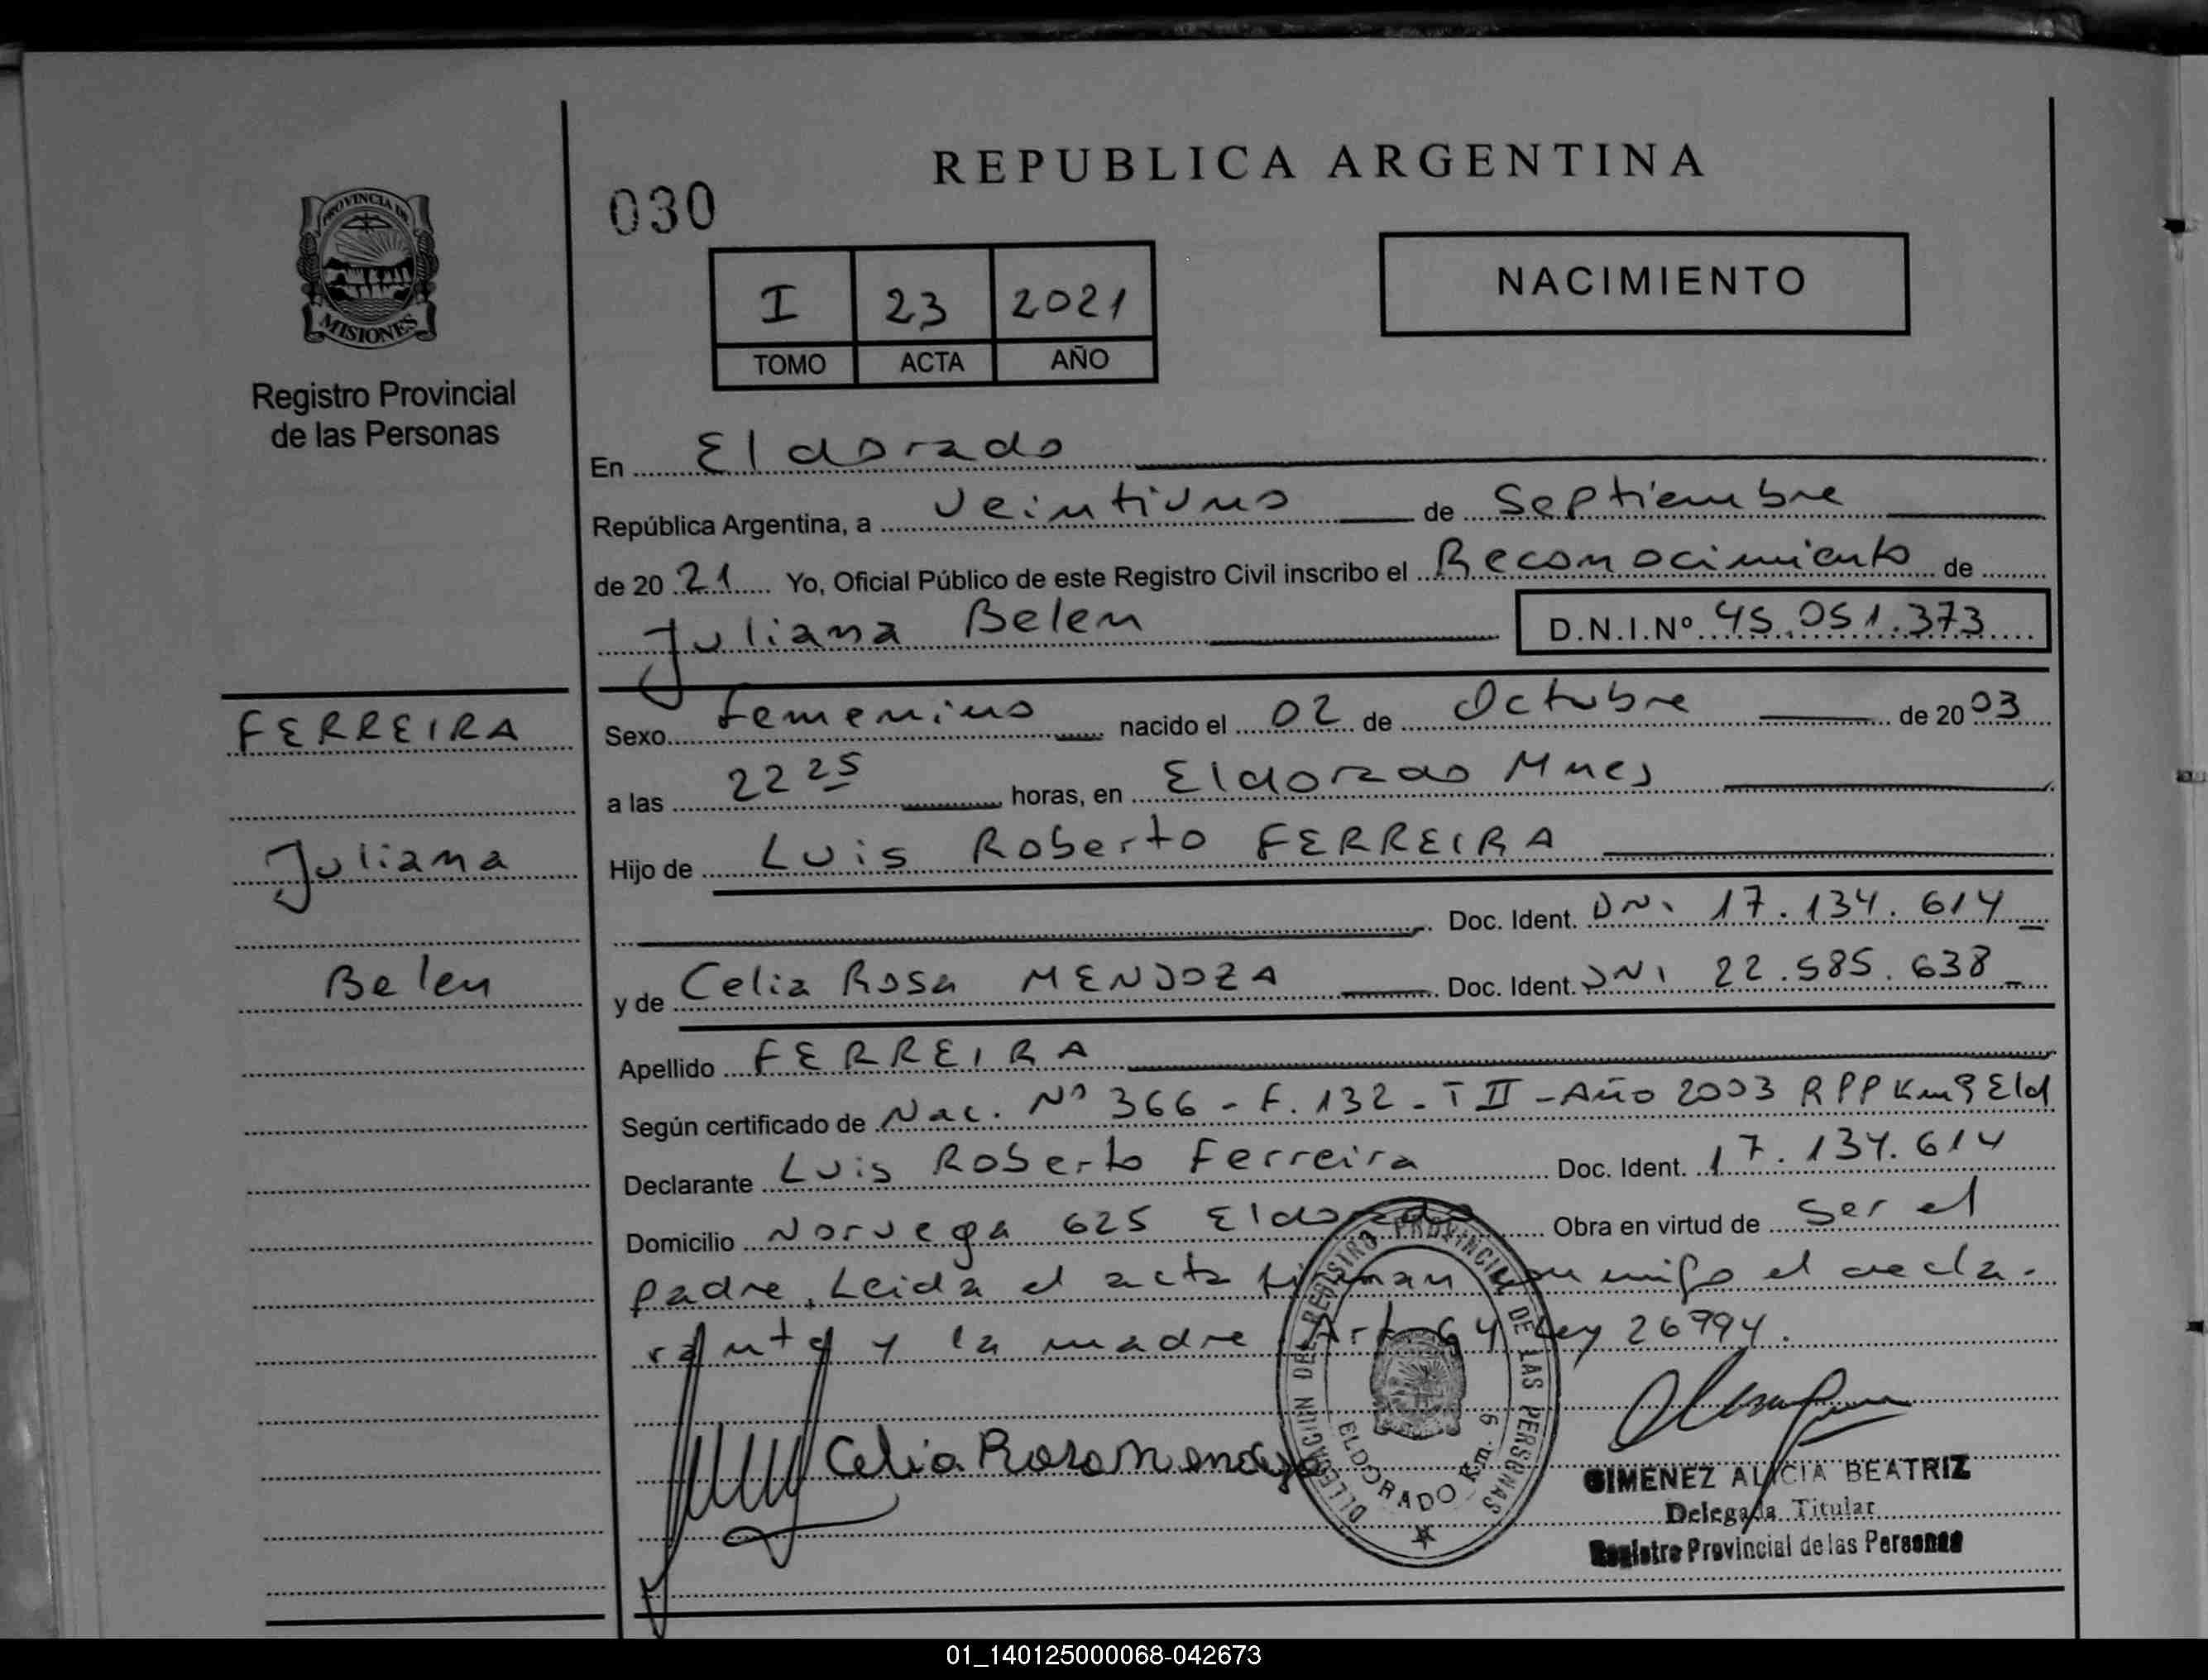 REPUBLICA ARGENTINA
030
NACIMIENTO
I 23 2021
TOMO ACTA AÑO
PROVINCIA DE
MISIONES
Registro Provincial
de las Personas
FERREIRA
Juliana
Belen
En Eldorado
República Argentina, a veintiuno de Septiembre
de 2021 Yo, Oficial Público de este Registro Civil inscribo el Reconocimiento de
Juliana Belen D.N.I.Nº 45.051.373
Sexo femenino nacido el 02 de Octubre de 2003
a las 22 25 horas, en Eldorado Mnes
Hijo de Luis Roberto FERREIRA
Doc. Ident. DNI 17.134.614
y de Celia Rosa MENDOZA Doc. Ident. DNI 22.585.638
Apellido FERREIRA
Según certificado de Nac. Nº 366 - F. 132 - T II - Año 2003 RPP Km9 Eld
Declarante Luis Roberto Ferreira Doc. Ident. 17.134.614
Domicilio Noruega 625 Eldorado Obra en virtud de ser el
padre. Leida el acta firman conmigo el decla-
rante y la madre. Art. 64 Ley 26994.
Celia Rosa Mendoza
DELEGACION DEL REGISTRO PROVINCIAL DE LAS PERSONAS
ELDORADO Km. 9
GIMENEZ ALICIA BEATRIZ
Delegada Titular
Registro Provincial de las Personas
01_140125000068-042673